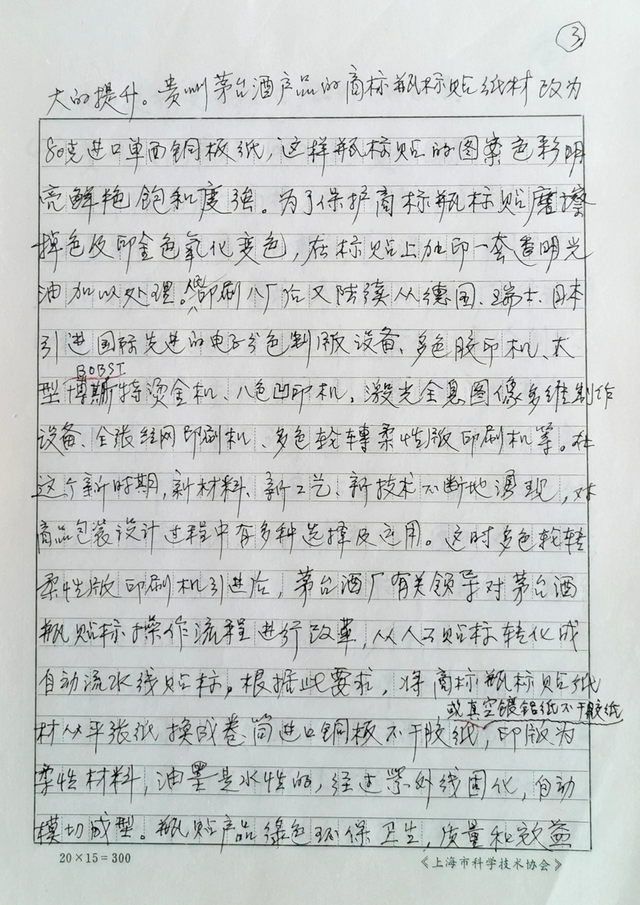 3
大的提升。贵州茅台酒产品的商标瓶标贴纸材改为
80克进口单面铜板纸，这样瓶标贴的图案色彩明
亮鲜艳饱和度强。为了保护商标瓶标贴磨擦
掉色及印金色氧化变色，在标贴上加印一套透明光
油加以处理。印刷八厂后又陆续从德国、瑞士、日本
引进国际先进的电子分色制版设备、多色胶印机、大
BOBST
型博斯特烫金机、八色凹印机，激光全息图像多维制作
设备、全张丝网印刷机、多色轮轉柔性版印刷机等。在
这个新时期，新材料、新工艺、新技术不断地湧现，对
商品包装设计过程中有多种选择及运用。这时多色轮转
柔性版印刷机引进后，茅台酒厂有关领导对茅台酒
瓶贴标操作流程进行改革，从人工贴标转化成
自动流水线贴标。根据此要求，将商标瓶标贴纸
或真空镀铝纸不干胶纸
材从平张纸换成卷筒进口铜板不干胶纸，印版为
柔性材料，油墨是水性的，经过紫外线固化，自动
模切成型。瓶贴产品绿色环保卫生，质量和效益
20×15=300
《上海市科学技术协会》